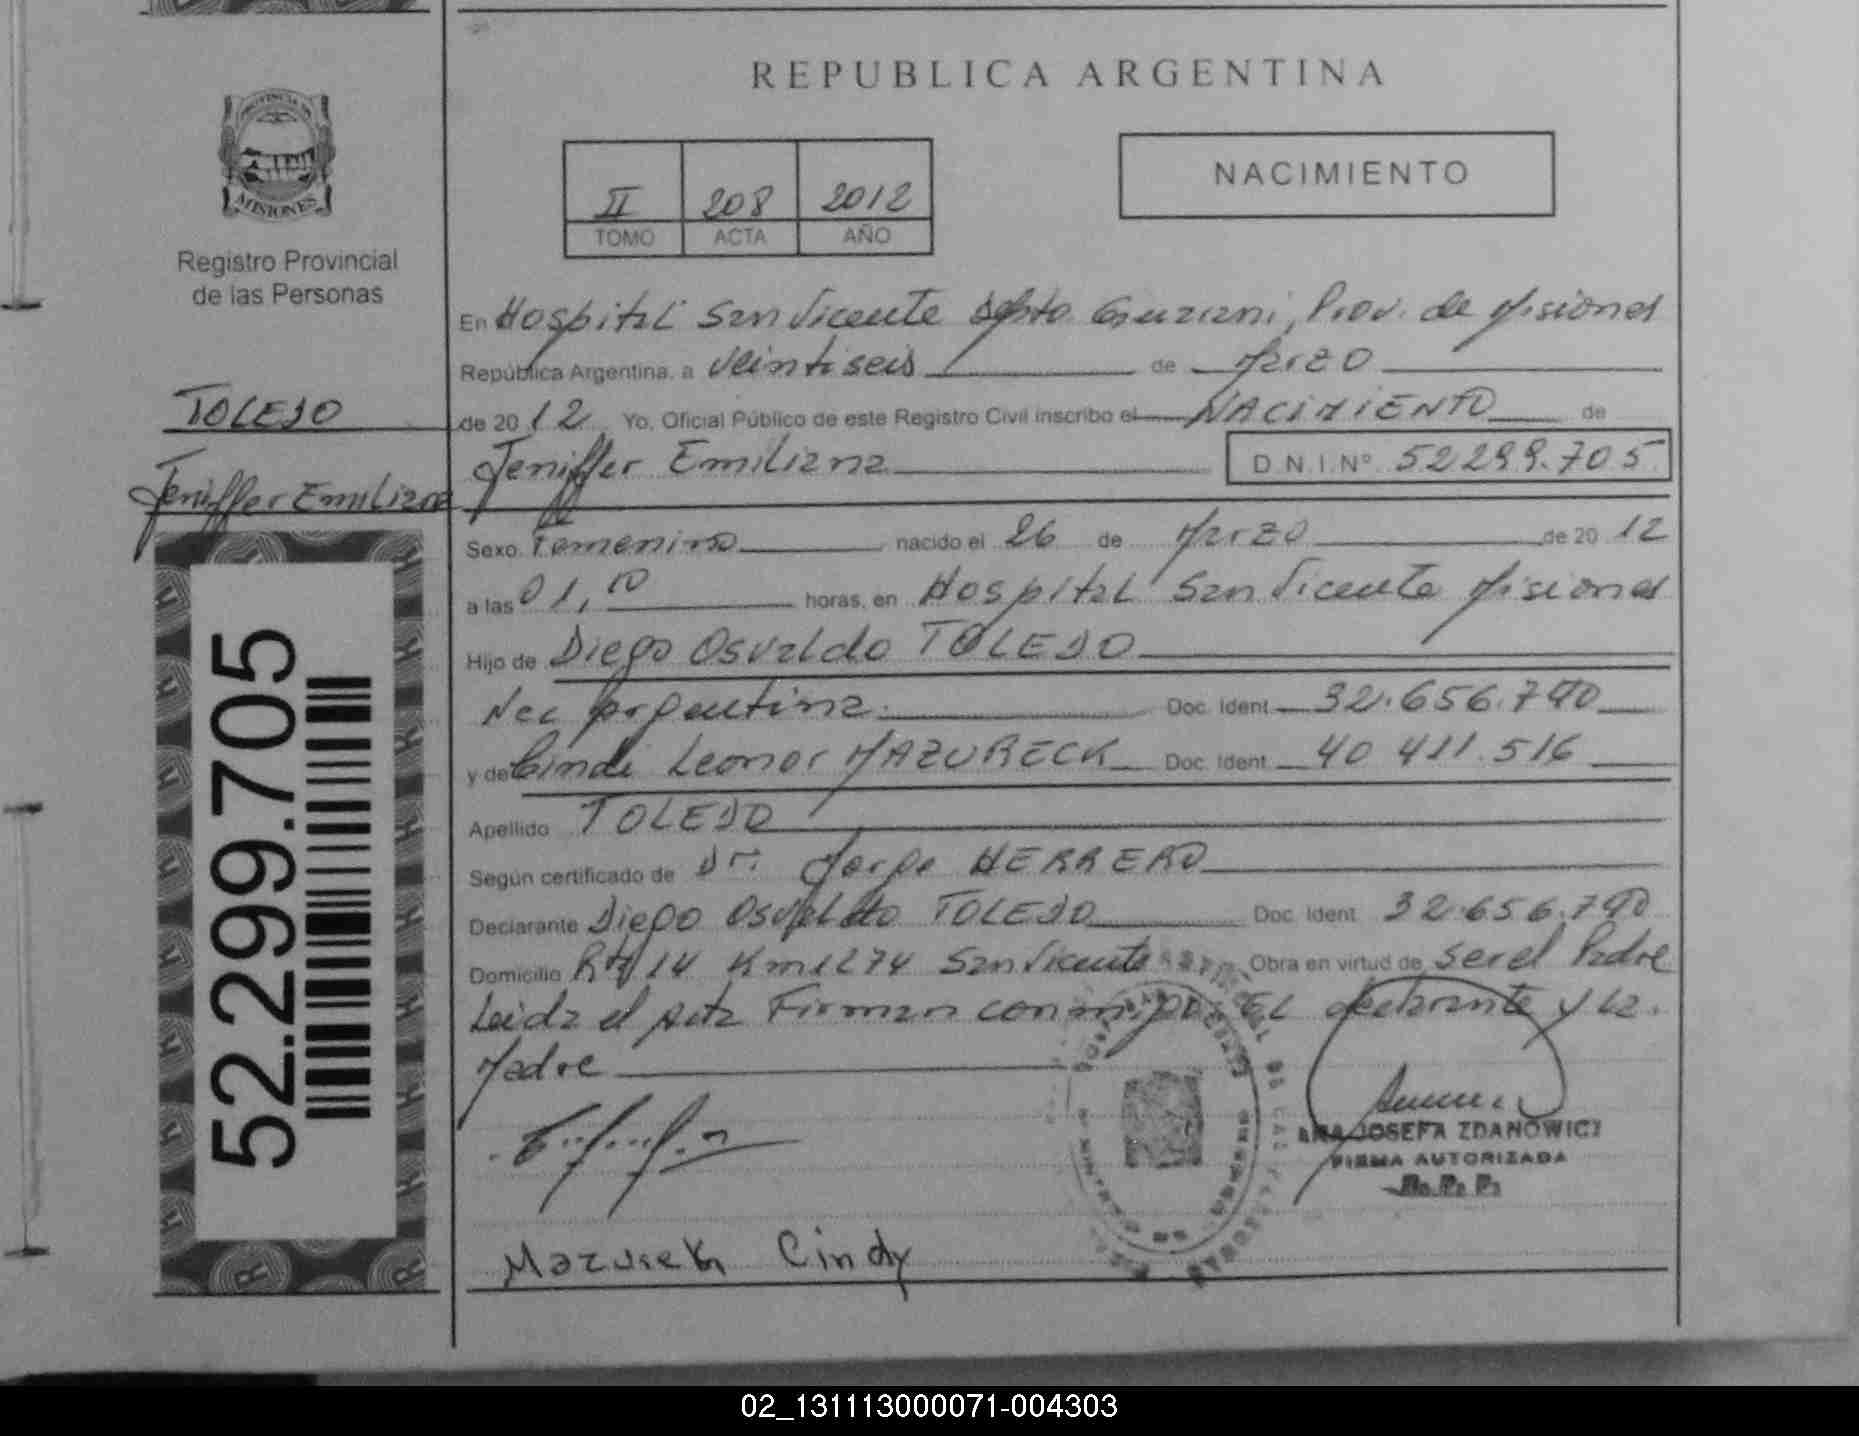 REPUBLICA ARGENTINA
PROVINCIA DE
MISIONES
Registro Provincial
de las Personas
II 208 2012
TOMO ACTA AÑO
NACIMIENTO
En Hospital San Vicente Dpto. Guarani, Prov. de Misiones
República Argentina, a veintiseis de Marzo
de 2012 Yo, Oficial Público de este Registro Civil inscribo el NACIMIENTO de
TOLEDO
Jeniffer Emiliana
Jeniffer Emiliana D.N.I.Nº 52299.705
Sexo Femenino nacido el 26 de Marzo de 2012
a las 01,10 horas, en Hospital San Vicente Misiones
Hijo de Diego Osvaldo TOLEDO
Nac Argentina. Doc. Ident. 32.656.790
y de Cindi Leonor MAZURECK Doc. Ident. 40 411.516
Apellido TOLEDO
Según certificado de Dr. Jorge HERRERO
Declarante Diego Osvaldo TOLEDO Doc. Ident. 32.656.790
Domicilio Rta 14 Km 1274 San Vicente Obra en virtud de ser el Padre
Leida el Acta Firman conmigo EL declarante y la
Madre
52.299.705
ANA JOSEFA ZDANOWICZ
FIRMA AUTORIZADA
R. P. P.
Mazurek Cindy
02_131113000071-004303